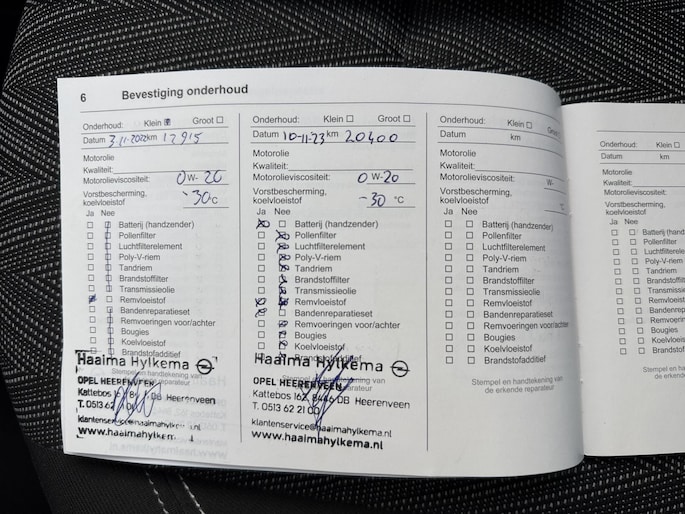 6 Bevestiging onderhoud
Onderhoud: Klein Groot
Datum 3-11-2022 km 12915
Motorolie
Kwaliteit:
Motorolieviscositeit: 0 W- 20
Vorstbescherming,
koelvloeistof -30 °C
Ja Nee
Batterij (handzender)
Pollenfilter
Luchtfilterelement
Poly-V-riem
Tandriem
Brandstoffilter
Transmissieolie
Remvloeistof
Bandenreparatieset
Remvoeringen voor/achter
Bougies
Koelvloeistof
Brandstofadditief
Haaima Hylkema
Stempel en handtekening van
reparateur
OPEL HEERENVEEN
Kattebos 162 8446 DB Heerenveen
T. 0513 62
klantenservice@haaimahylkema.nl
www.haaimahylkem
Onderhoud: Klein Groot
Datum 10-11-23 km 20400
Motorolie
Kwaliteit:
Motorolieviscositeit: 0 W-20
Vorstbescherming,
koelvloeistof -30 °C
Ja Nee
Batterij (handzender)
Pollenfilter
Luchtfilterelement
Poly-V-riem
Tandriem
Brandstoffilter
Transmissieolie
Remvloeistof
Bandenreparatieset
Remvoeringen voor/achter
Bougies
Koelvloeistof
Brandstofadditief
Haaima Hylkema
Stempel en handtekening van
reparateur
OPEL HEERENVEEN
Kattebos 162, 8446 DB Heerenveen
T. 0513 62 21 00
klantenservice@haaimahylkema.nl
www.haaimahylkema.nl
Onderhoud: Klein Groot
Datum km
Motorolie
Kwaliteit:
Motorolieviscositeit: W-
Vorstbescherming,
koelvloeistof °C
Ja Nee
Batterij (handzender)
Pollenfilter
Luchtfilterelement
Poly-V-riem
Tandriem
Brandstoffilter
Transmissieolie
Remvloeistof
Bandenreparatieset
Remvoeringen voor/achter
Bougies
Koelvloeistof
Brandstofadditief
Stempel en handtekening van
de erkende reparateur
Onderhoud: Klein
Datum km
Motorolie
Kwaliteit:
Motorolieviscositeit:
Vorstbescherming,
koelvloeistof
Ja Nee
Batterij (handz
Pollenfilter
Luchtfilterele
Poly-V-riem
Tandriem
Brandstoffilte
Transmissie
Remvloeist
Bandenrep
Remvoeri
Bougies
Koelvloei
Brandst
Stempel
de